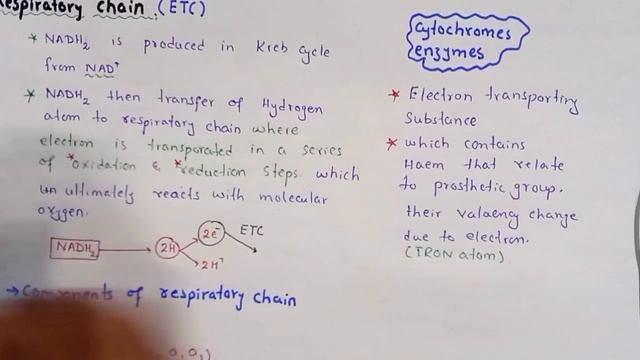 Respiratory chain. (ETC)
* NADH₂ is produced in Kreb Cycle
from NAD⁺
* NADH₂ then transfer of Hydrogen
atom to respiratory chain where
electron is transporated in a series
of *oxidation & *reduction steps which
un ultimately reacts with molecular
oxygen.
NADH₂ 2H 2e⁻ ETC
2H⁺
→ Components of respiratory chain
Cytochromes
enzymes
* Electron transporting
Substance
* which contains
Haem that relate
to prosthetic group.
their valaeng change
due to electron.
(IRON atom)